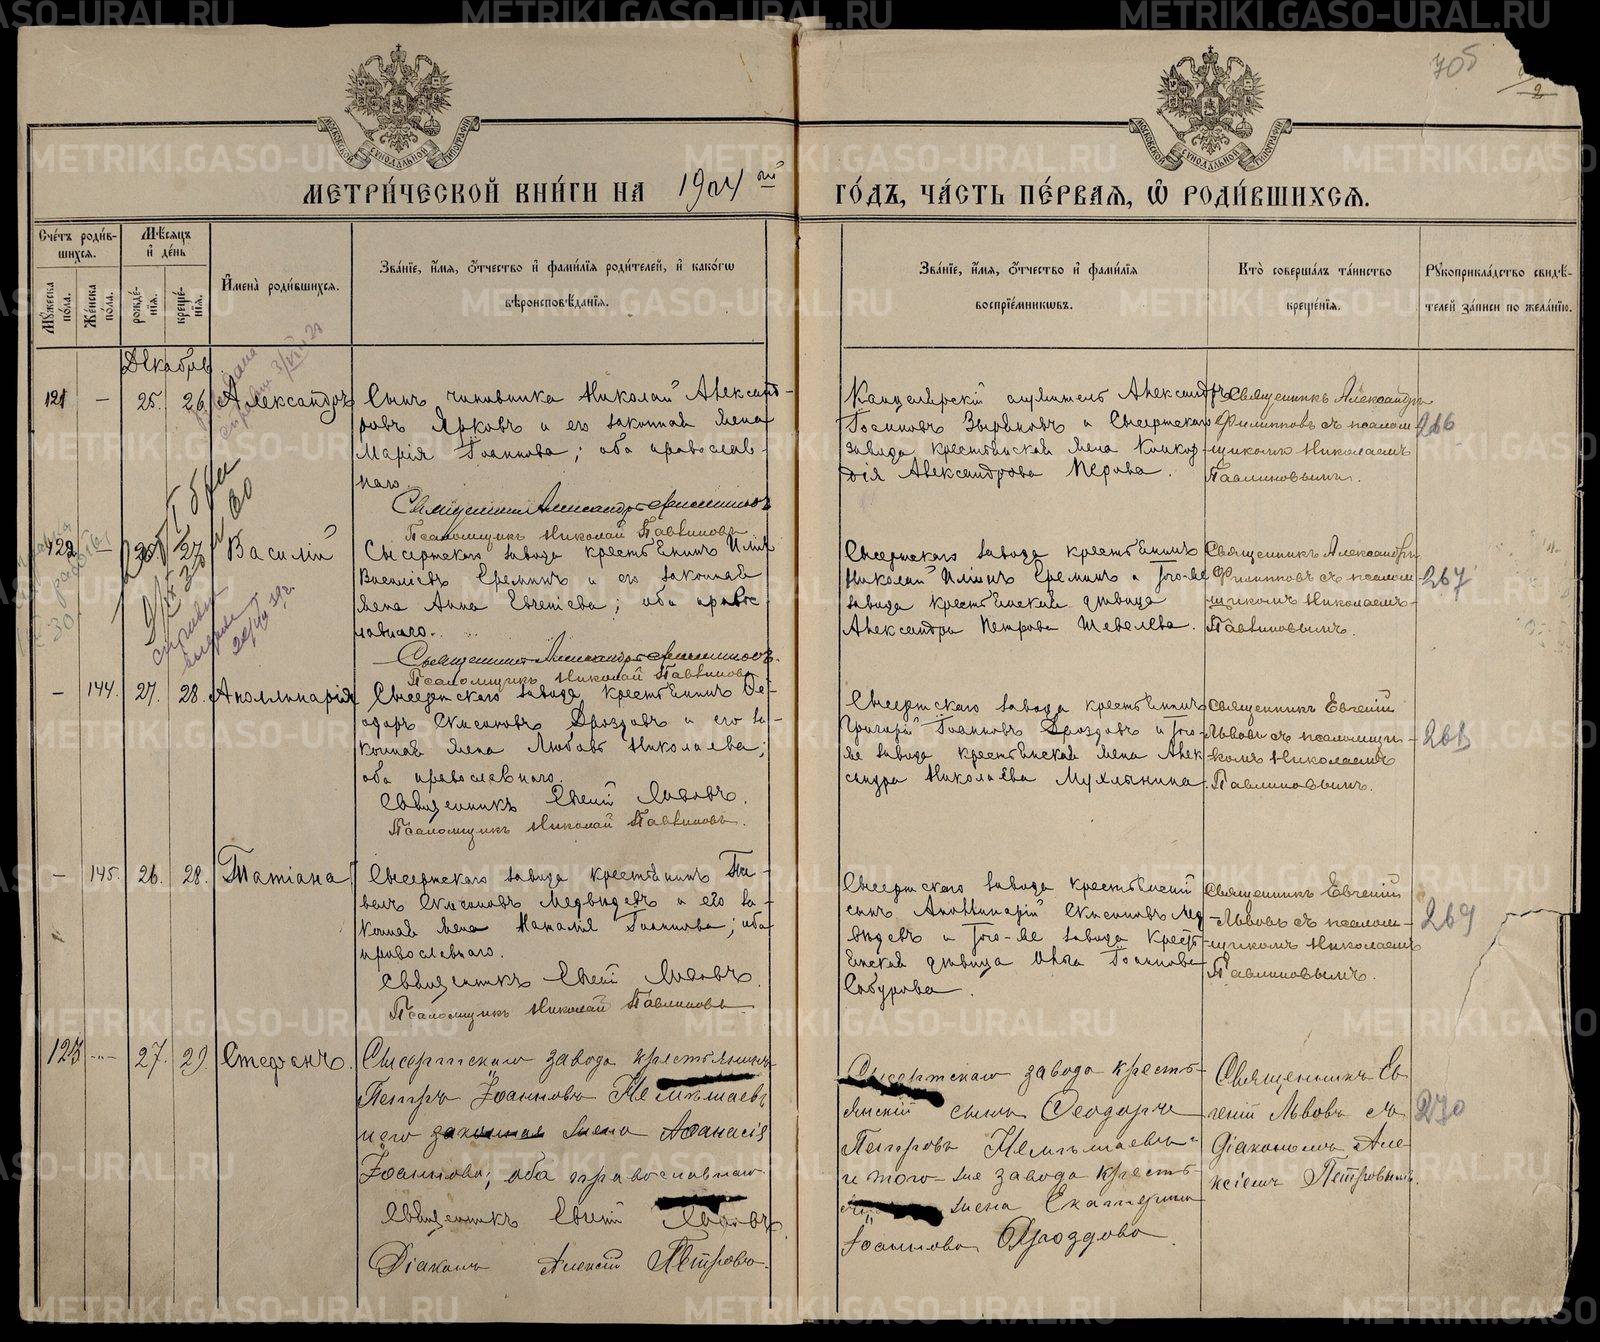 МЕТРИ́ЧЕСКОЙ КНИ́ГИ НА 1904 ый ГО́ДЪ, ЧА́СТЬ ПЕ́РВАЯ, Ѡ РОДИ́ВШИХСЯ.
705
Сче́тъ роди́вшихся.
Мꙋ́жеска по́ла.
Же́нска по́ла.
Мѣ́сяцъ и де́нь
рожде́нїя.
креще́нїя.
И҆мена̀ роди́вшихся.
Зва́нїе, и҆́мя, ѻ҆́тчество и҆ фами́лїя роди́телей, и҆ како́гѡ
вѣроисповѣ́данїя.
Зва́нїе, и҆́мя, ѻ҆́тчество и҆ фами́лїя
воспрїе́мникѡвъ.
Кто̀ соверша́лъ та́инство
креще́нїя.
Рꙋкоприкла́дство свидѣ́-
телей за́писи по жела́нїю.
Декабрь
121 — 25. 26. Александръ
Сынъ чиновника Николай Александ-
ровъ Ярковъ и его законная жена
Марія Іоаннова; оба православ-
наго.
Священникъ Александръ Филипповъ
Псаломщикъ Николай Павлиновъ
Канцелярскій служитель Александръ
Іоанновъ Зыряновъ и Сысертскаго
завода крестьянская жена Конкор-
дія Александрова Перова.
Священникъ Александръ
Филипповъ съ псалом-
щикомъ Николаемъ
Павлиновымъ.
266
122 — 26 27 Василій
Сысертскаго завода крестьянинъ Илія
Василіевъ Ереминъ и его законная
жена Анна Евгеніева; оба право-
славнаго.
Священникъ Александръ Филипповъ.
Псаломщикъ Николай Павлиновъ
Сысертскаго завода крестьянинъ
Николай Иліинъ Ереминъ и того-же
завода крестьянская дѣвица
Александра Петрова Шевелева.
Священникъ Александръ
Филипповъ съ псалом-
щикомъ Николаемъ
Павлиновымъ.
267
— 144. 27. 28. Аполлинарія
Сысертскаго завода крестьянинъ Ѳе-
одоръ Складновъ Дроздовъ и его за-
конная жена Любовь Николаева;
оба православнаго.
Священникъ Евгеній Львовъ.
Псаломщикъ Николай Павлиновъ.
Сысертскаго завода крестьянинъ
Григорій Іоанновъ Дроздовъ и того-
же завода крестьянская жена Алек-
сандра Николаева Мухлынина.
Священникъ Евгеній
Львовъ съ псаломщи-
комъ Николаемъ
Павлиновымъ.
268
— 145. 26. 28. Татіана
Сысертскаго завода крестьянинъ Па-
велъ Медвѣдевъ и его за-
конная жена Наталія Іоаннова; оба
православнаго.
Священникъ Евгеній Львовъ.
Псаломщикъ Николай Павлиновъ
Сысертскаго завода крестьянскій
сынъ Аполлинарій Мед-
вѣдевъ и того-же завода кресть-
янская дѣвица Ольга Іоаннова
Сабурова.
Священникъ Евгеній
Львовъ съ псалом-
щикомъ Николаемъ
Павлиновымъ.
269
123 — 27. 29. Стефанъ.
Сысертскаго завода крестьянинъ
Петръ Іоанновъ
и его законная жена Аѳанасія
Іоаннова; оба православнаго
Священникъ Евгеній Львовъ.
Діаконъ Алексій Петровъ.
Сысертскаго завода кресть-
янскій сынъ Ѳеодоръ
Петровъ
и того-же завода кресть-
жена Екатерина
Іоаннова Дроздова.
Священникъ Ев-
геній Львовъ съ
Діакономъ Але-
ксіемъ Петровымъ.
270